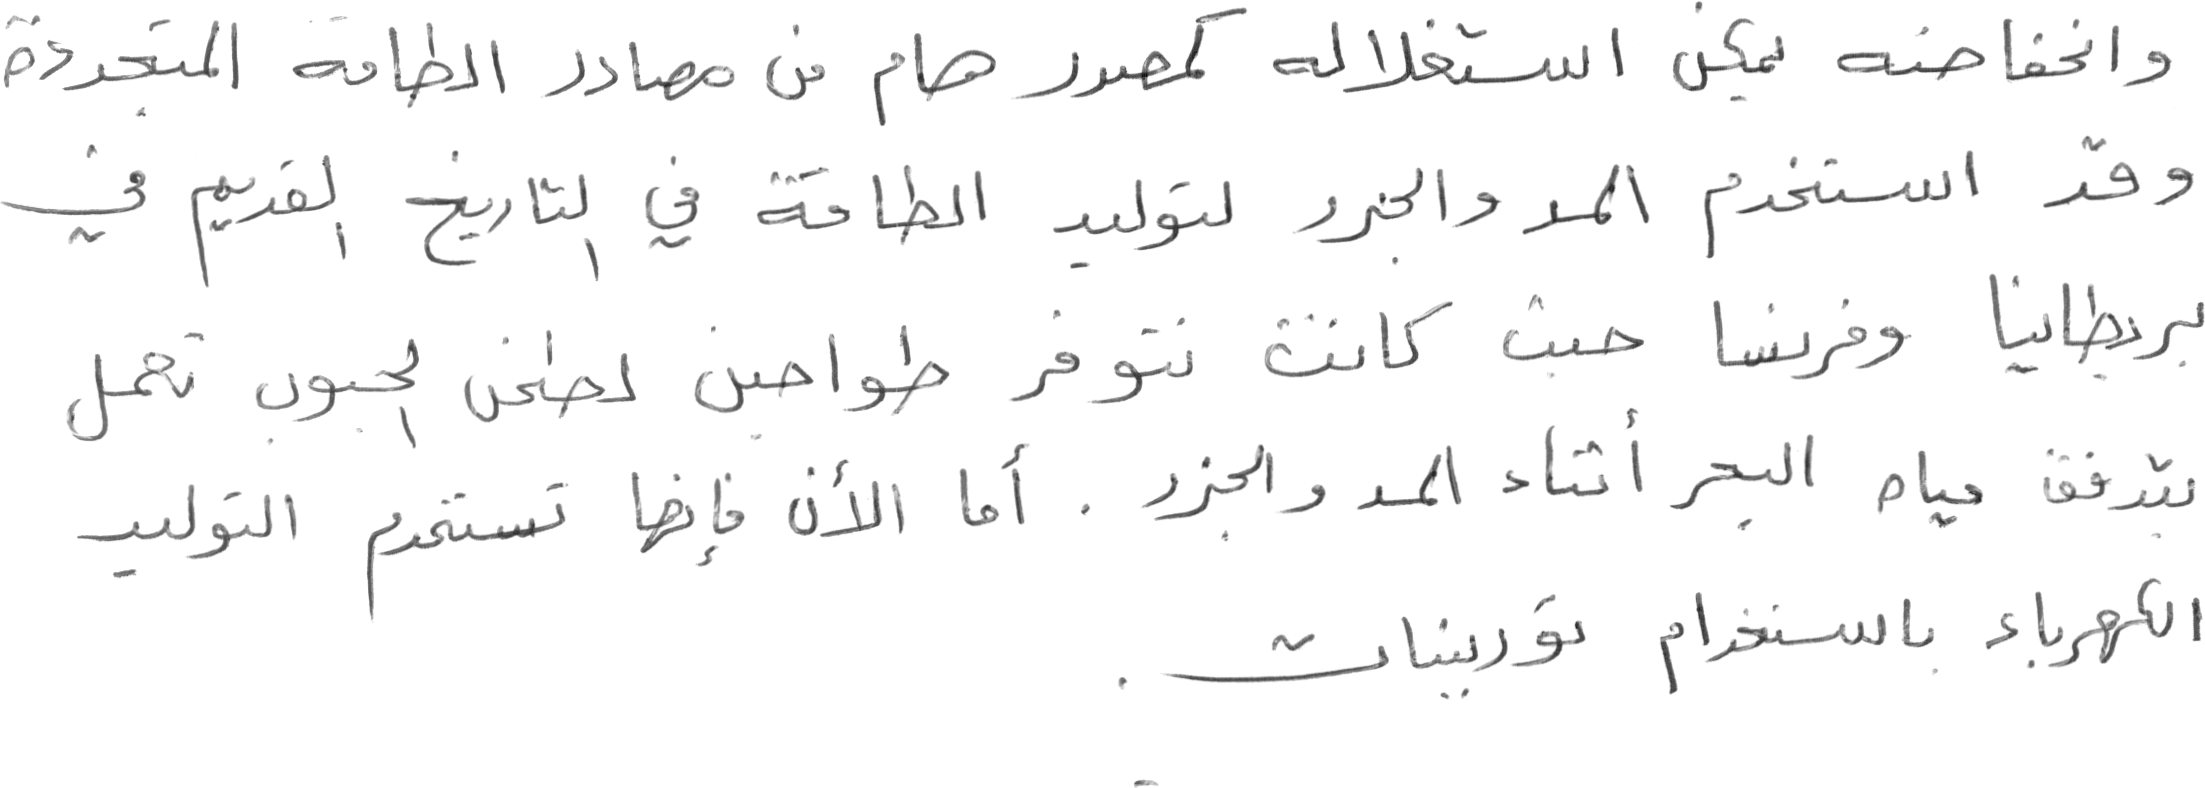 وانخفاضه يمكن استغلاله كمصدر هام من مصادر الطاقة المتجددة
وقد استخدم المد والجزر لتوليد الطاقة في التاريخ القديم في
بريطانيا وفرنسا حيث كانت تتوفر طواحين لطحن الحبوب تعمل
بتدفق مياه البحر أثناء المد والجزر . أما الأن فإنها تستخدم التوليد
الكهرباء باستخدام توربينات .